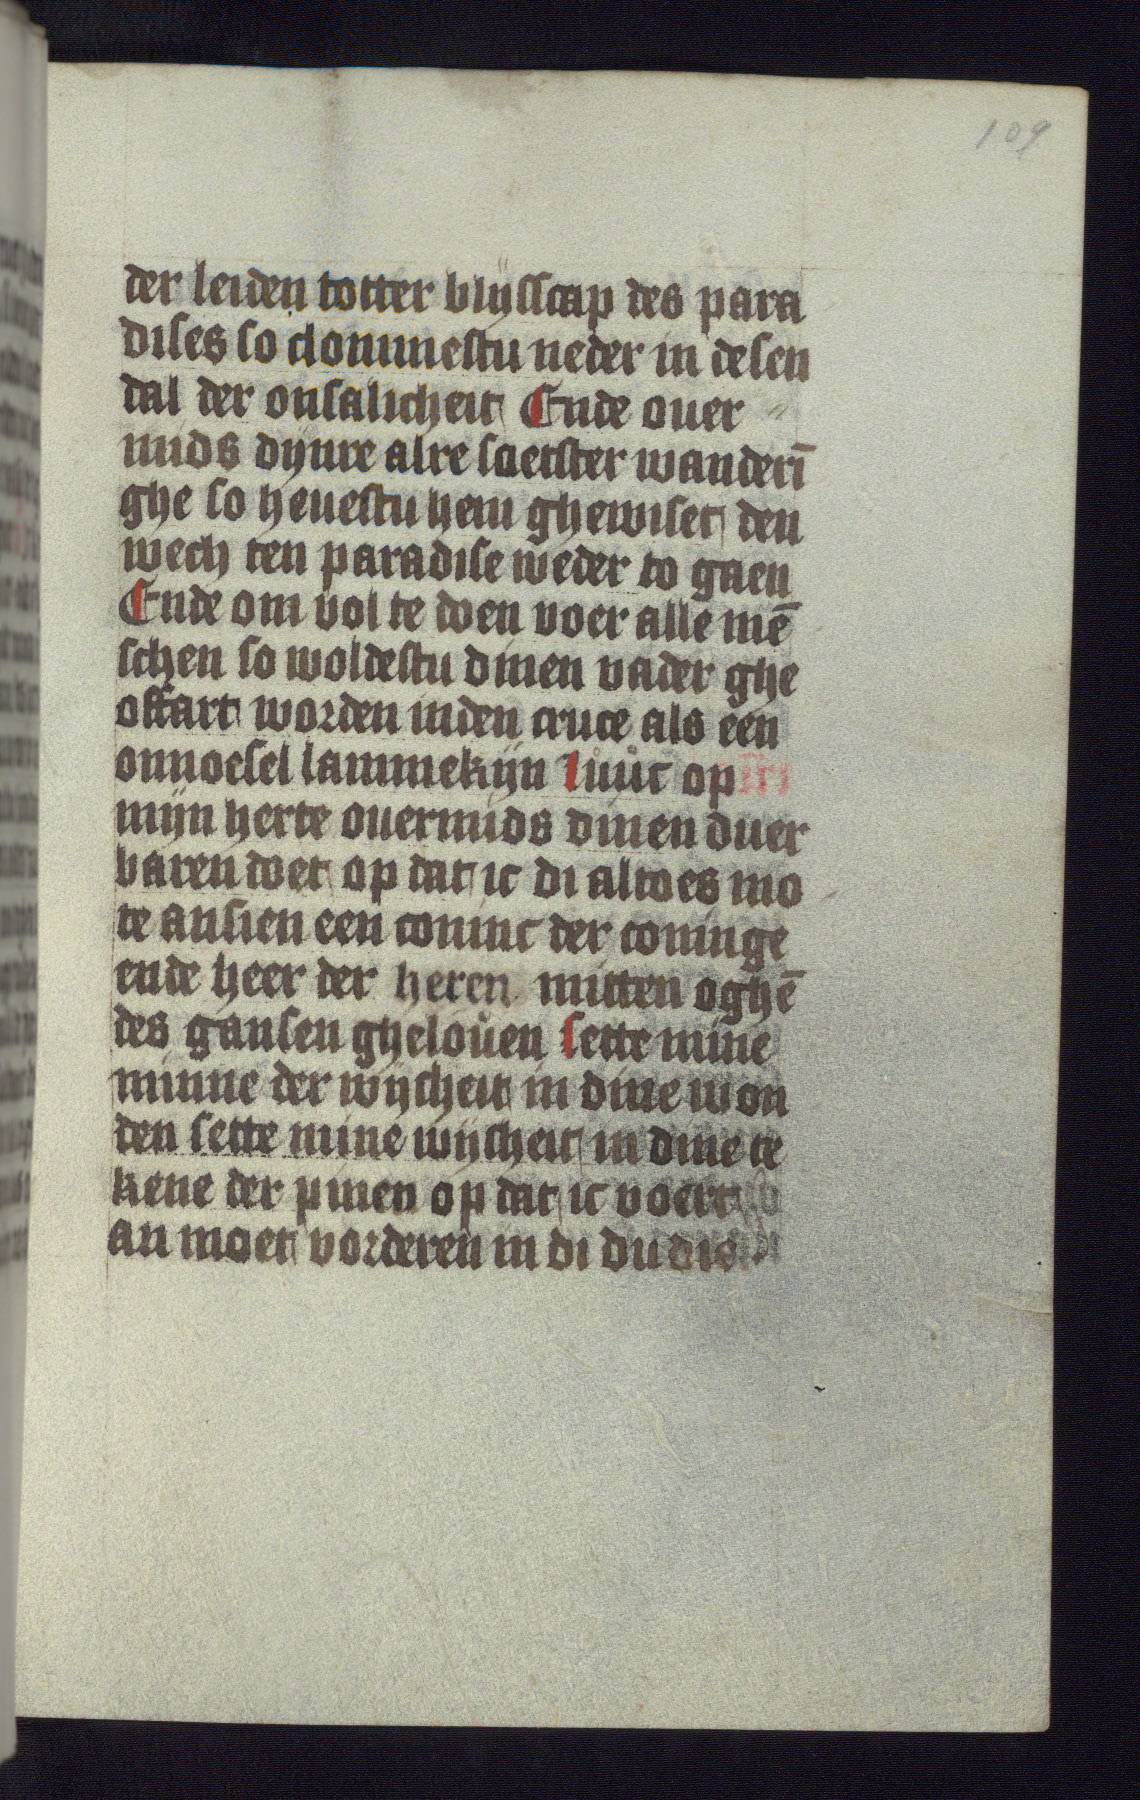 109
der leiden totter blijsscap des para
dises so clommestu neder in desen
dal der onsalicheit Ende ouer
mids dijnre alre soetster wanderī
ghe so heuestu hem ghewiset den
wech ten paradise weder to gaen
Ende om vol te doen voer alle mē
schen so woldestu dinen vader ghe
offart worden inden cruce als een
onnoesel lammekijn op
mijn herte ouermids dinen duer
baren doet op dat ic di altoes mo
te ansien een coninc der coninge
ende heer der heren mitten oghē
des gansen ghelouen sette mine
minne der wijsheit in dine won
den sette mine wijsheit in dine te
kene der pinen op dat ic voert
an moet vorderen in di du die